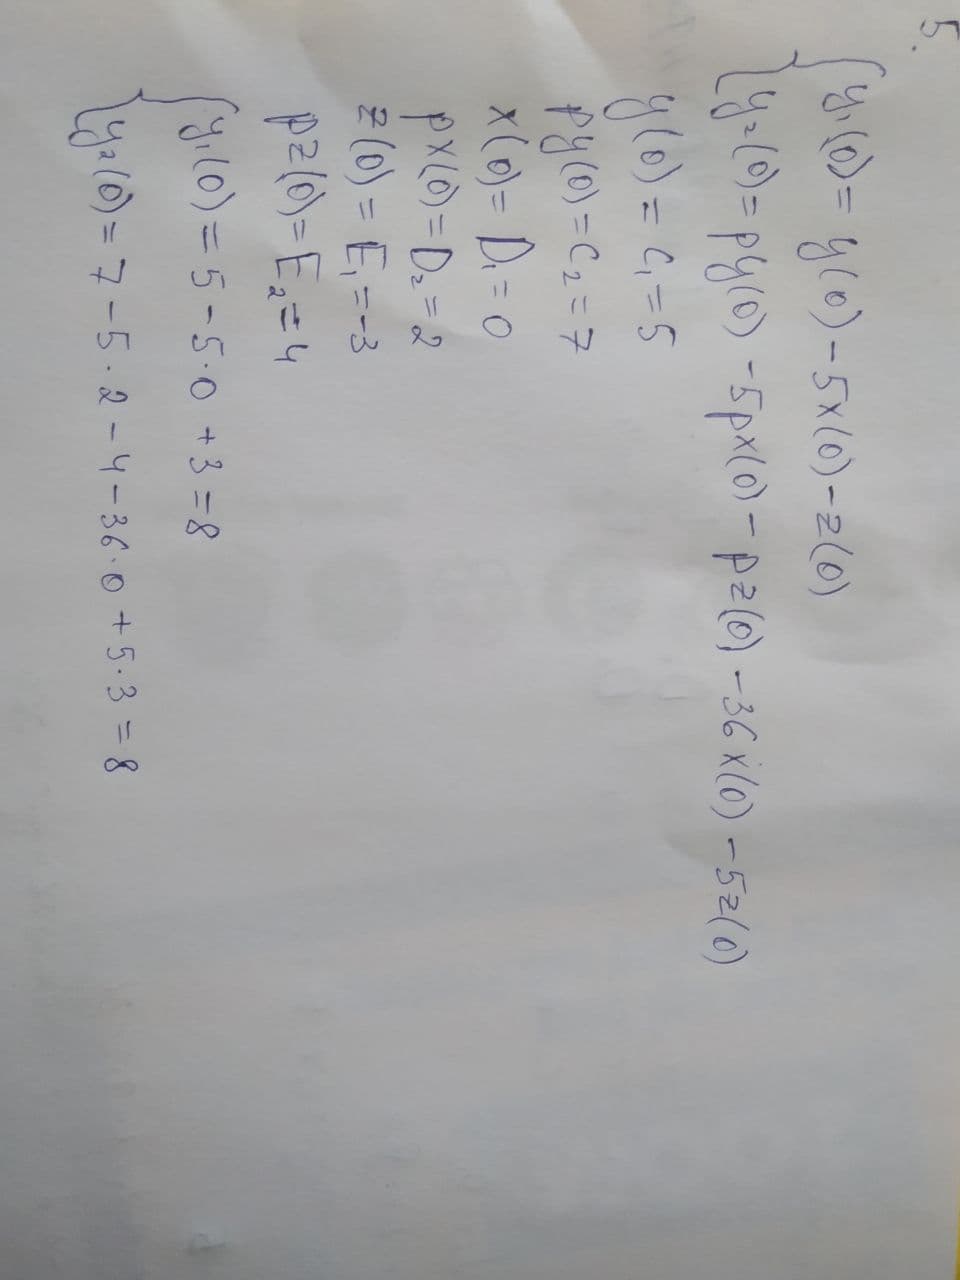 5.
y₁(0) = y(0) - 5x(0) - z(0)
y₂(0) = py(0) - 5px(0) - pz(0) - 36x(0) - 5z(0)
y(0) = C₁ = 5
py(0) = C₂ = 7
x(0) = D₁ = 0
px(0) = D₂ = 2
z(0) = E₁ = -3
pz(0) = E₂ = 4
y₁(0) = 5 - 5·0 + 3 = 8
y₂(0) = 7 - 5·2 - 4 - 36·0 + 5·3 = 8